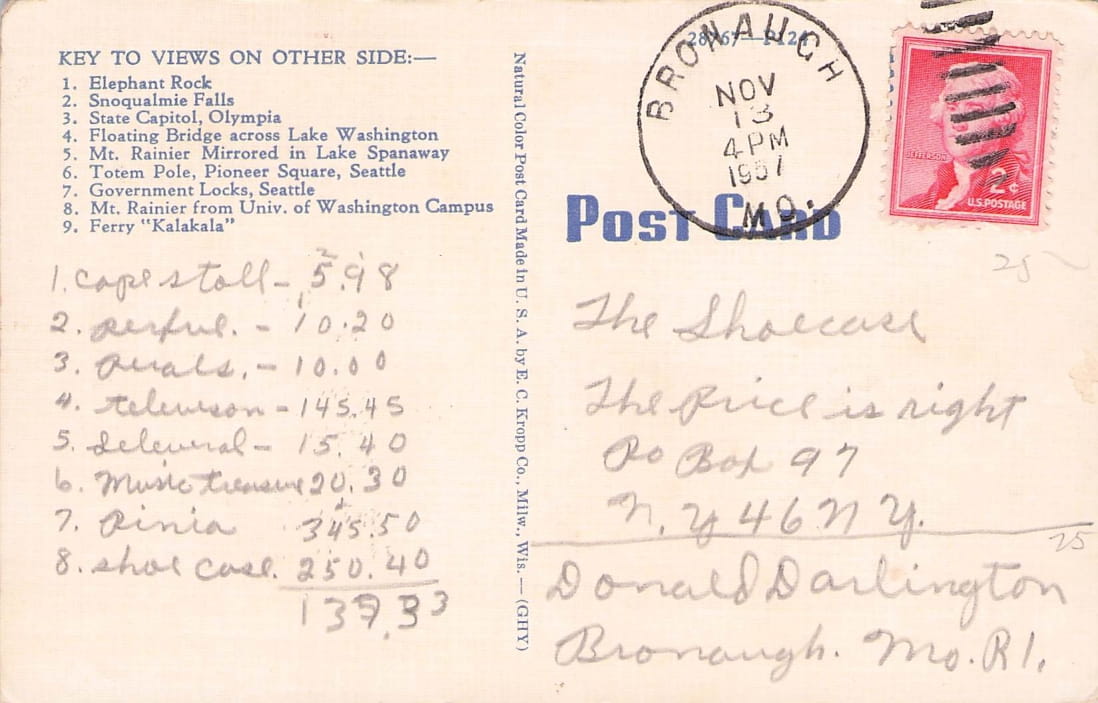 KEY TO VIEWS ON OTHER SIDE:—
1. Elephant Rock
2. Snoqualmie Falls
3. State Capitol, Olympia
4. Floating Bridge across Lake Washington
5. Mt. Rainier Mirrored in Lake Spanaway
6. Totem Pole, Pioneer Square, Seattle
7. Government Locks, Seattle
8. Mt. Rainier from Univ. of Washington Campus
9. Ferry "Kalakala"
1. cape stoll - 5.98
2. perful. - 10.20
3. - 10.00
4. - 145.45
5. - 15.40
6. Music treasure 20.30
7. 345.50
8. shoe case. 250.40
Natural Color Post Card Made in U. S. A. by E. C. Kropp Co., Milw., Wis.—(GHY)
BRONAUGH
NOV
13
4 PM
1957
MO.
JEFFERSON
2¢
U.S. POSTAGE
POST CARD
25
The Shoecase
The Price is right
Po Box 97
N. Y 46 N Y.
25
Donald Darlington
Bronaugh. Mo. R1.